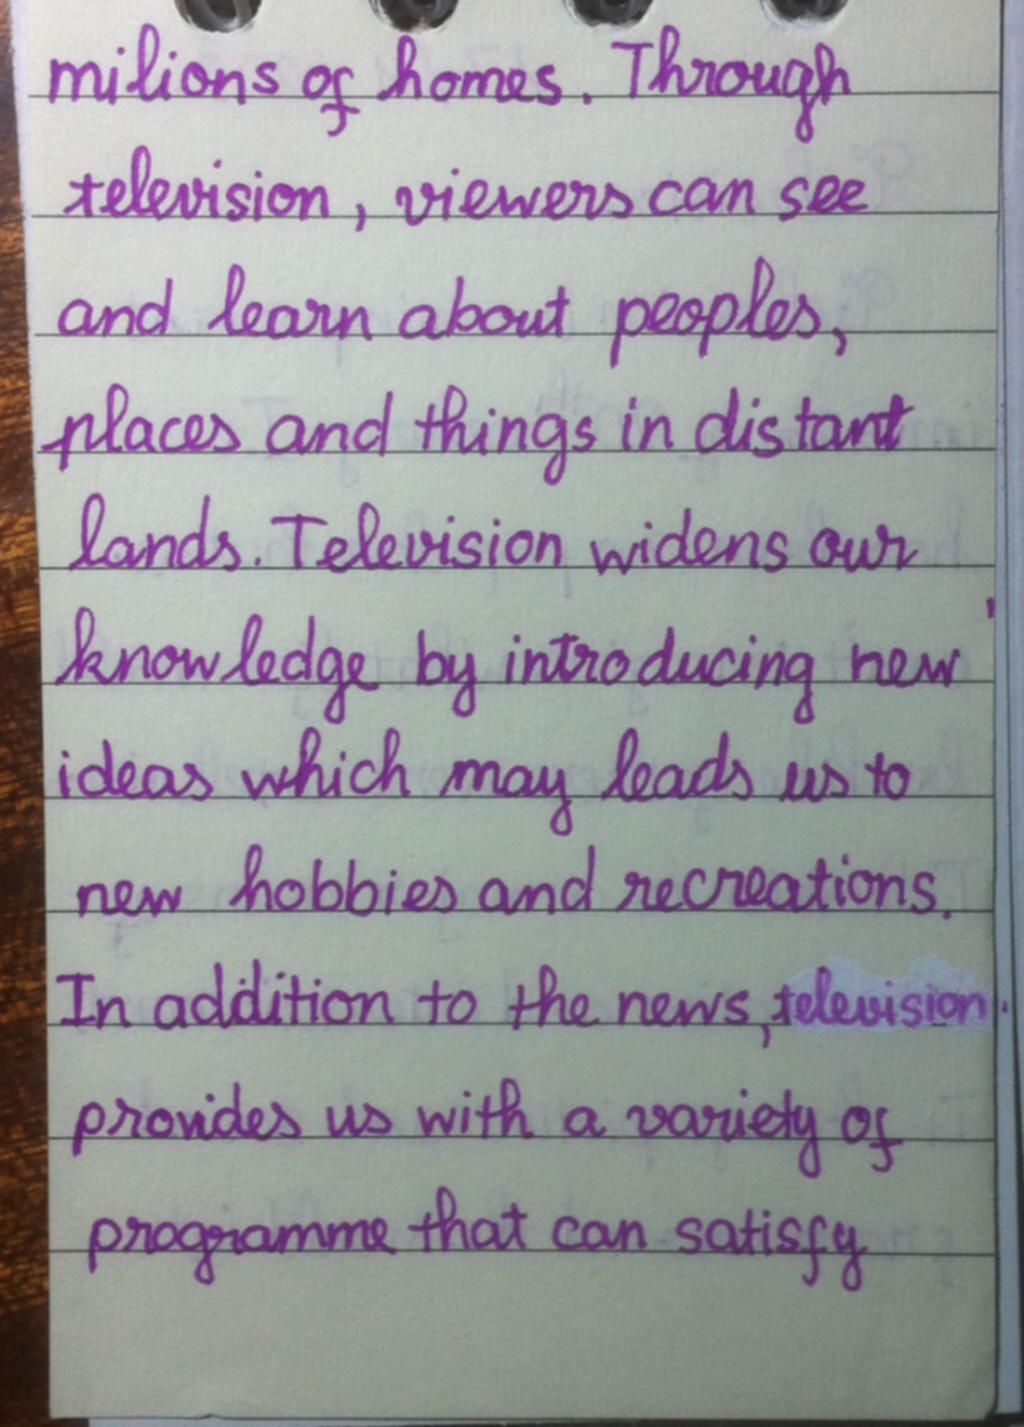 milions of homes. Through
television, viewers can see
and learn about peoples,
places and things in distant
lands. Television widens our
knowledge by introducing new
ideas which may leads us to
new hobbies and recreations.
In addition to the news, television
provides us with a variety of
programme that can satisfy